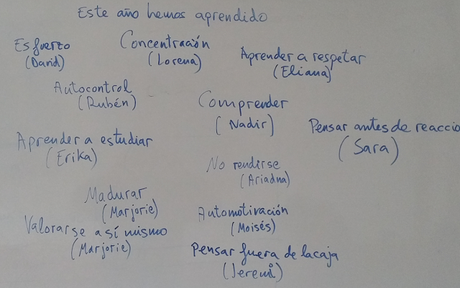 Este año hemos aprendido
Esfuerzo
(David)
Concentración
(Lorena)
Aprender a respetar
(Eliana)
Autocontrol
(Rubén)
Comprender
(Nadir)
Pensar antes de reaccio
(Sara)
Aprender a estudiar
(Erika)
No rendirse
(Ariadna)
Madurar
(Marjorie)
Automotivación
(Moisés)
Valorarse a sí mismo
(Marjorie)
Pensar fuera de la caja
(Jeremi)